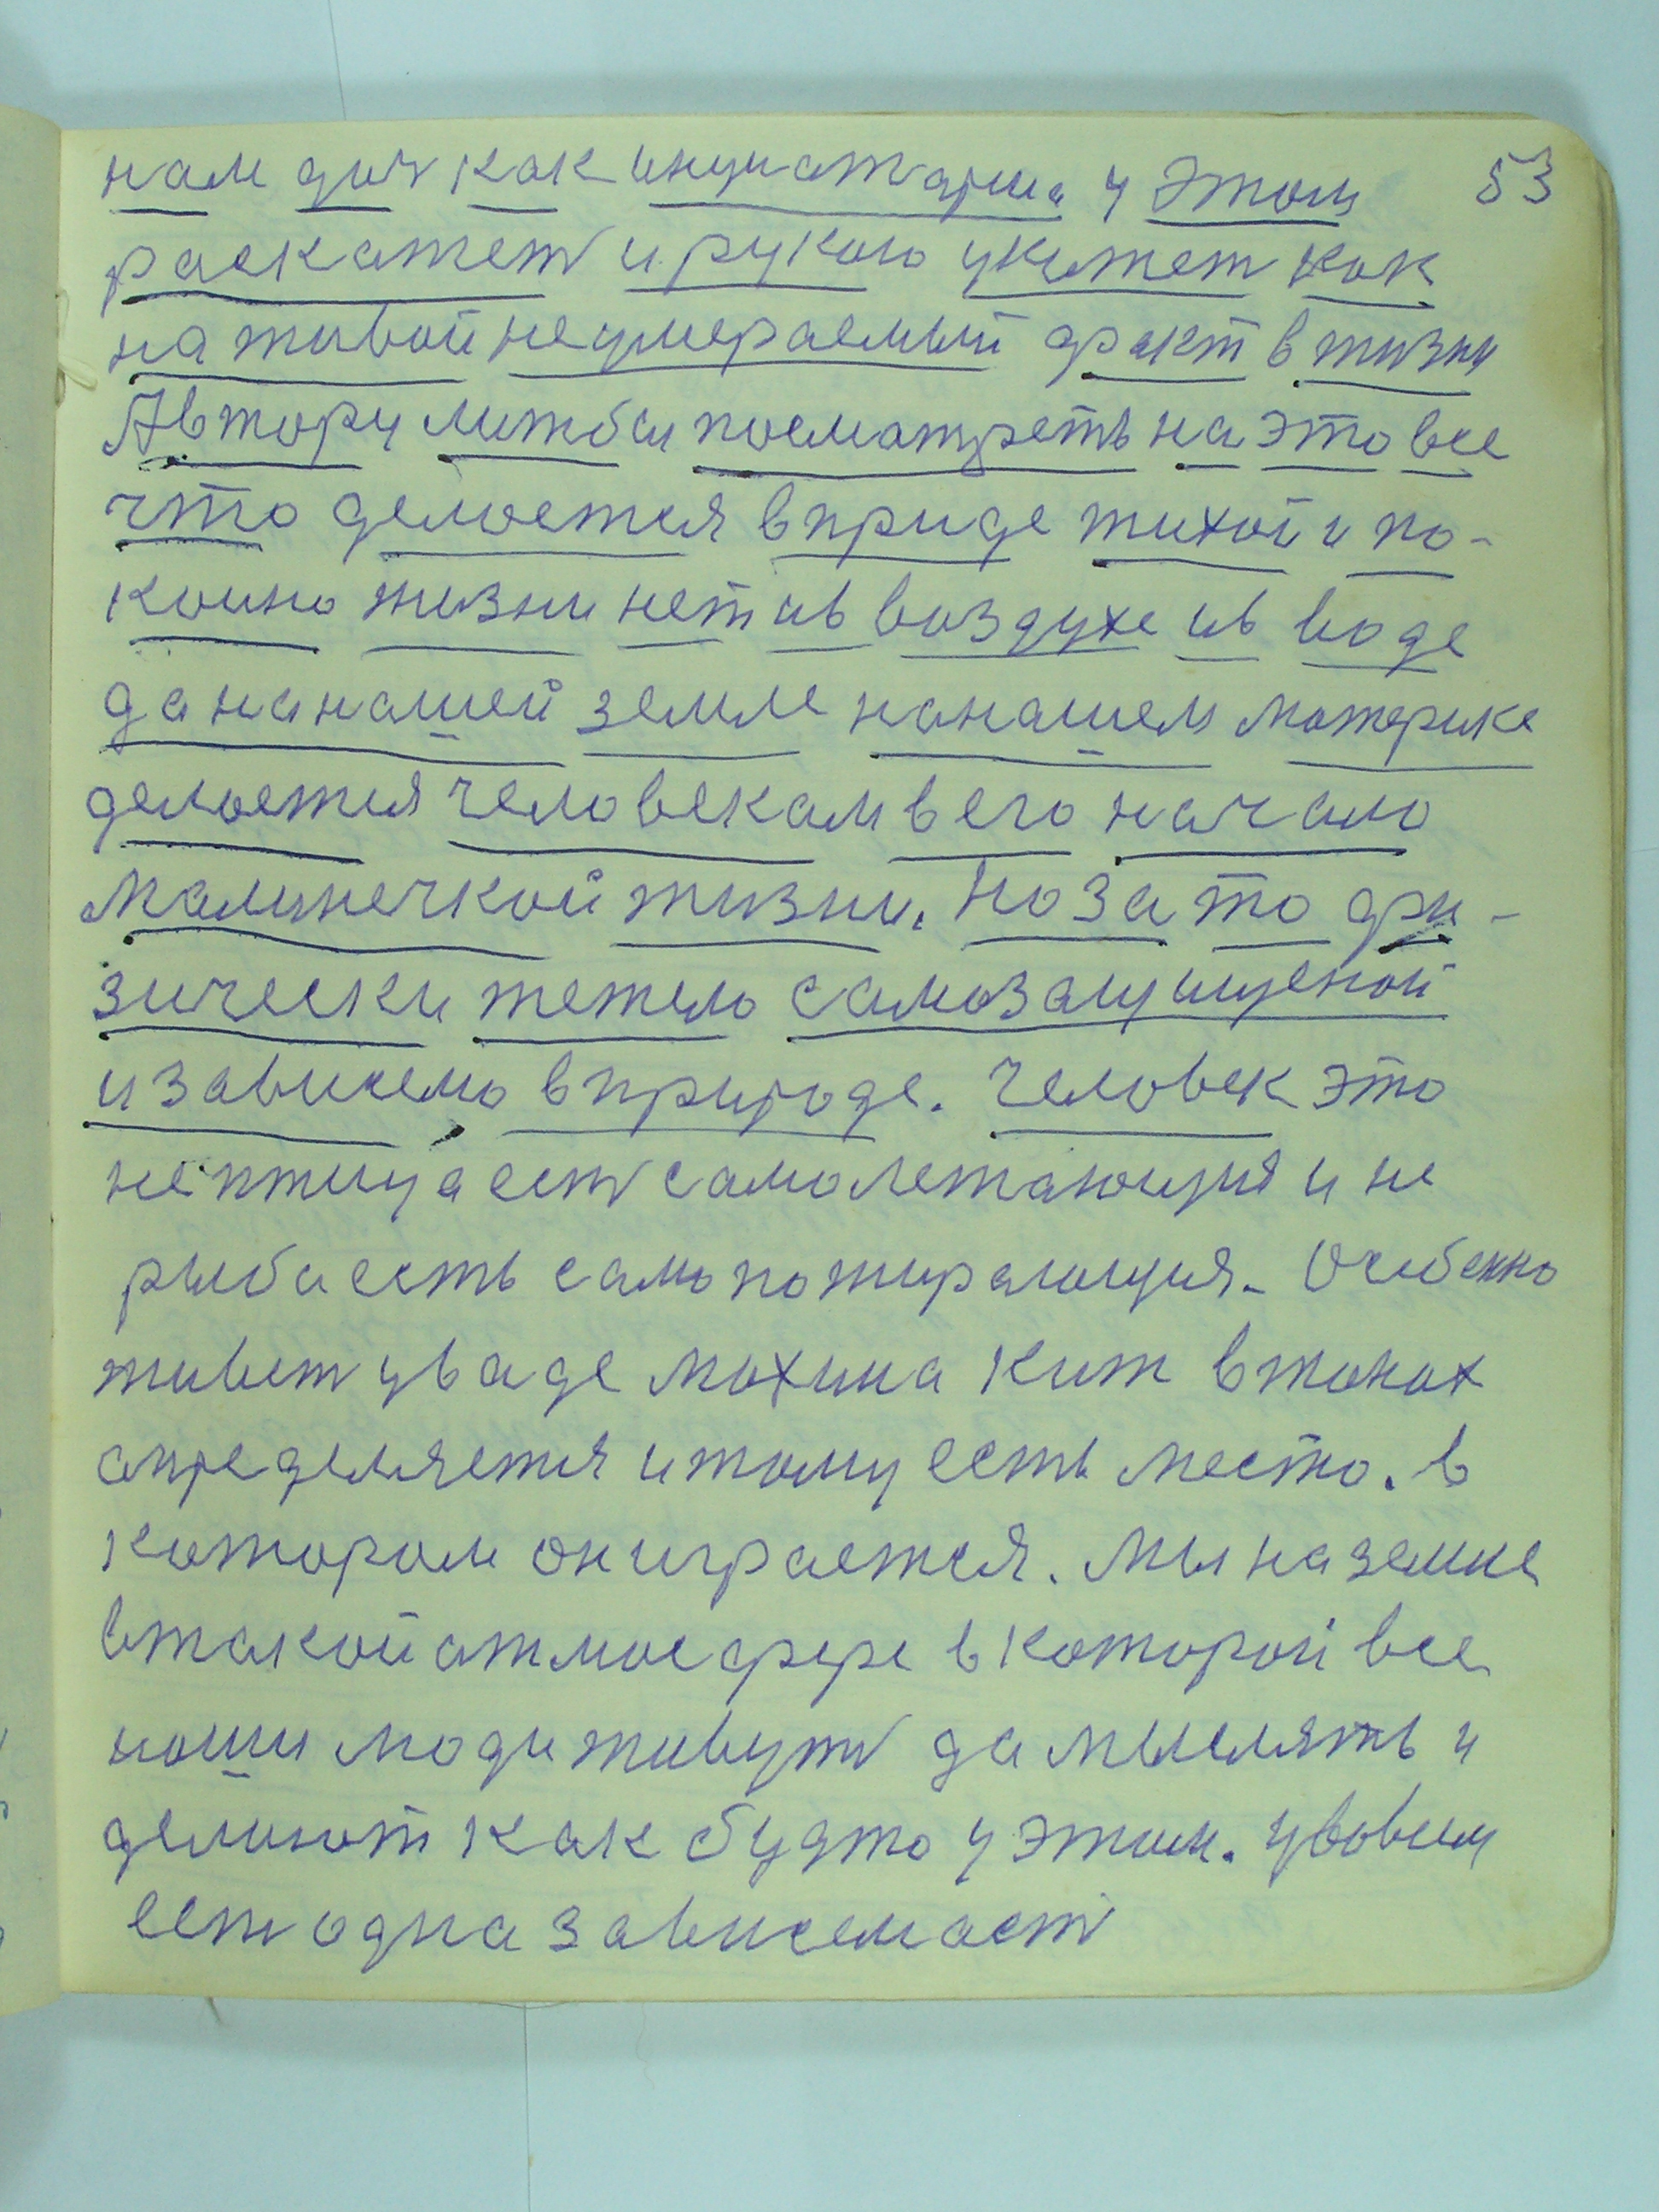 нам дич как инциаттрша у этом 53
раскажет и рукою укажет как
на живой неумераемый факт в жизни
Автору лижбы посматреть на это все
что делоется вприде тихой и по-
коино жизни нет ив воздухе ив воде
да на нашей земле на нашем материке
делоется человекам в его начало
малинечкой жизни. Но за то фи-
зически тежело самозащищеной
и зависемо в природе. Человек это
не птица ест самолетающия и не
рыба есть само пожирающия. Особенно
живет у ваде махина Кит в тонах
определяется и тому есть место. в
котором он играется. Мы на земле
в такой атмосфере в которой все
наши люди живут да мыслять и
делают как будто у этом. у вовсем
ест одна зависемаст